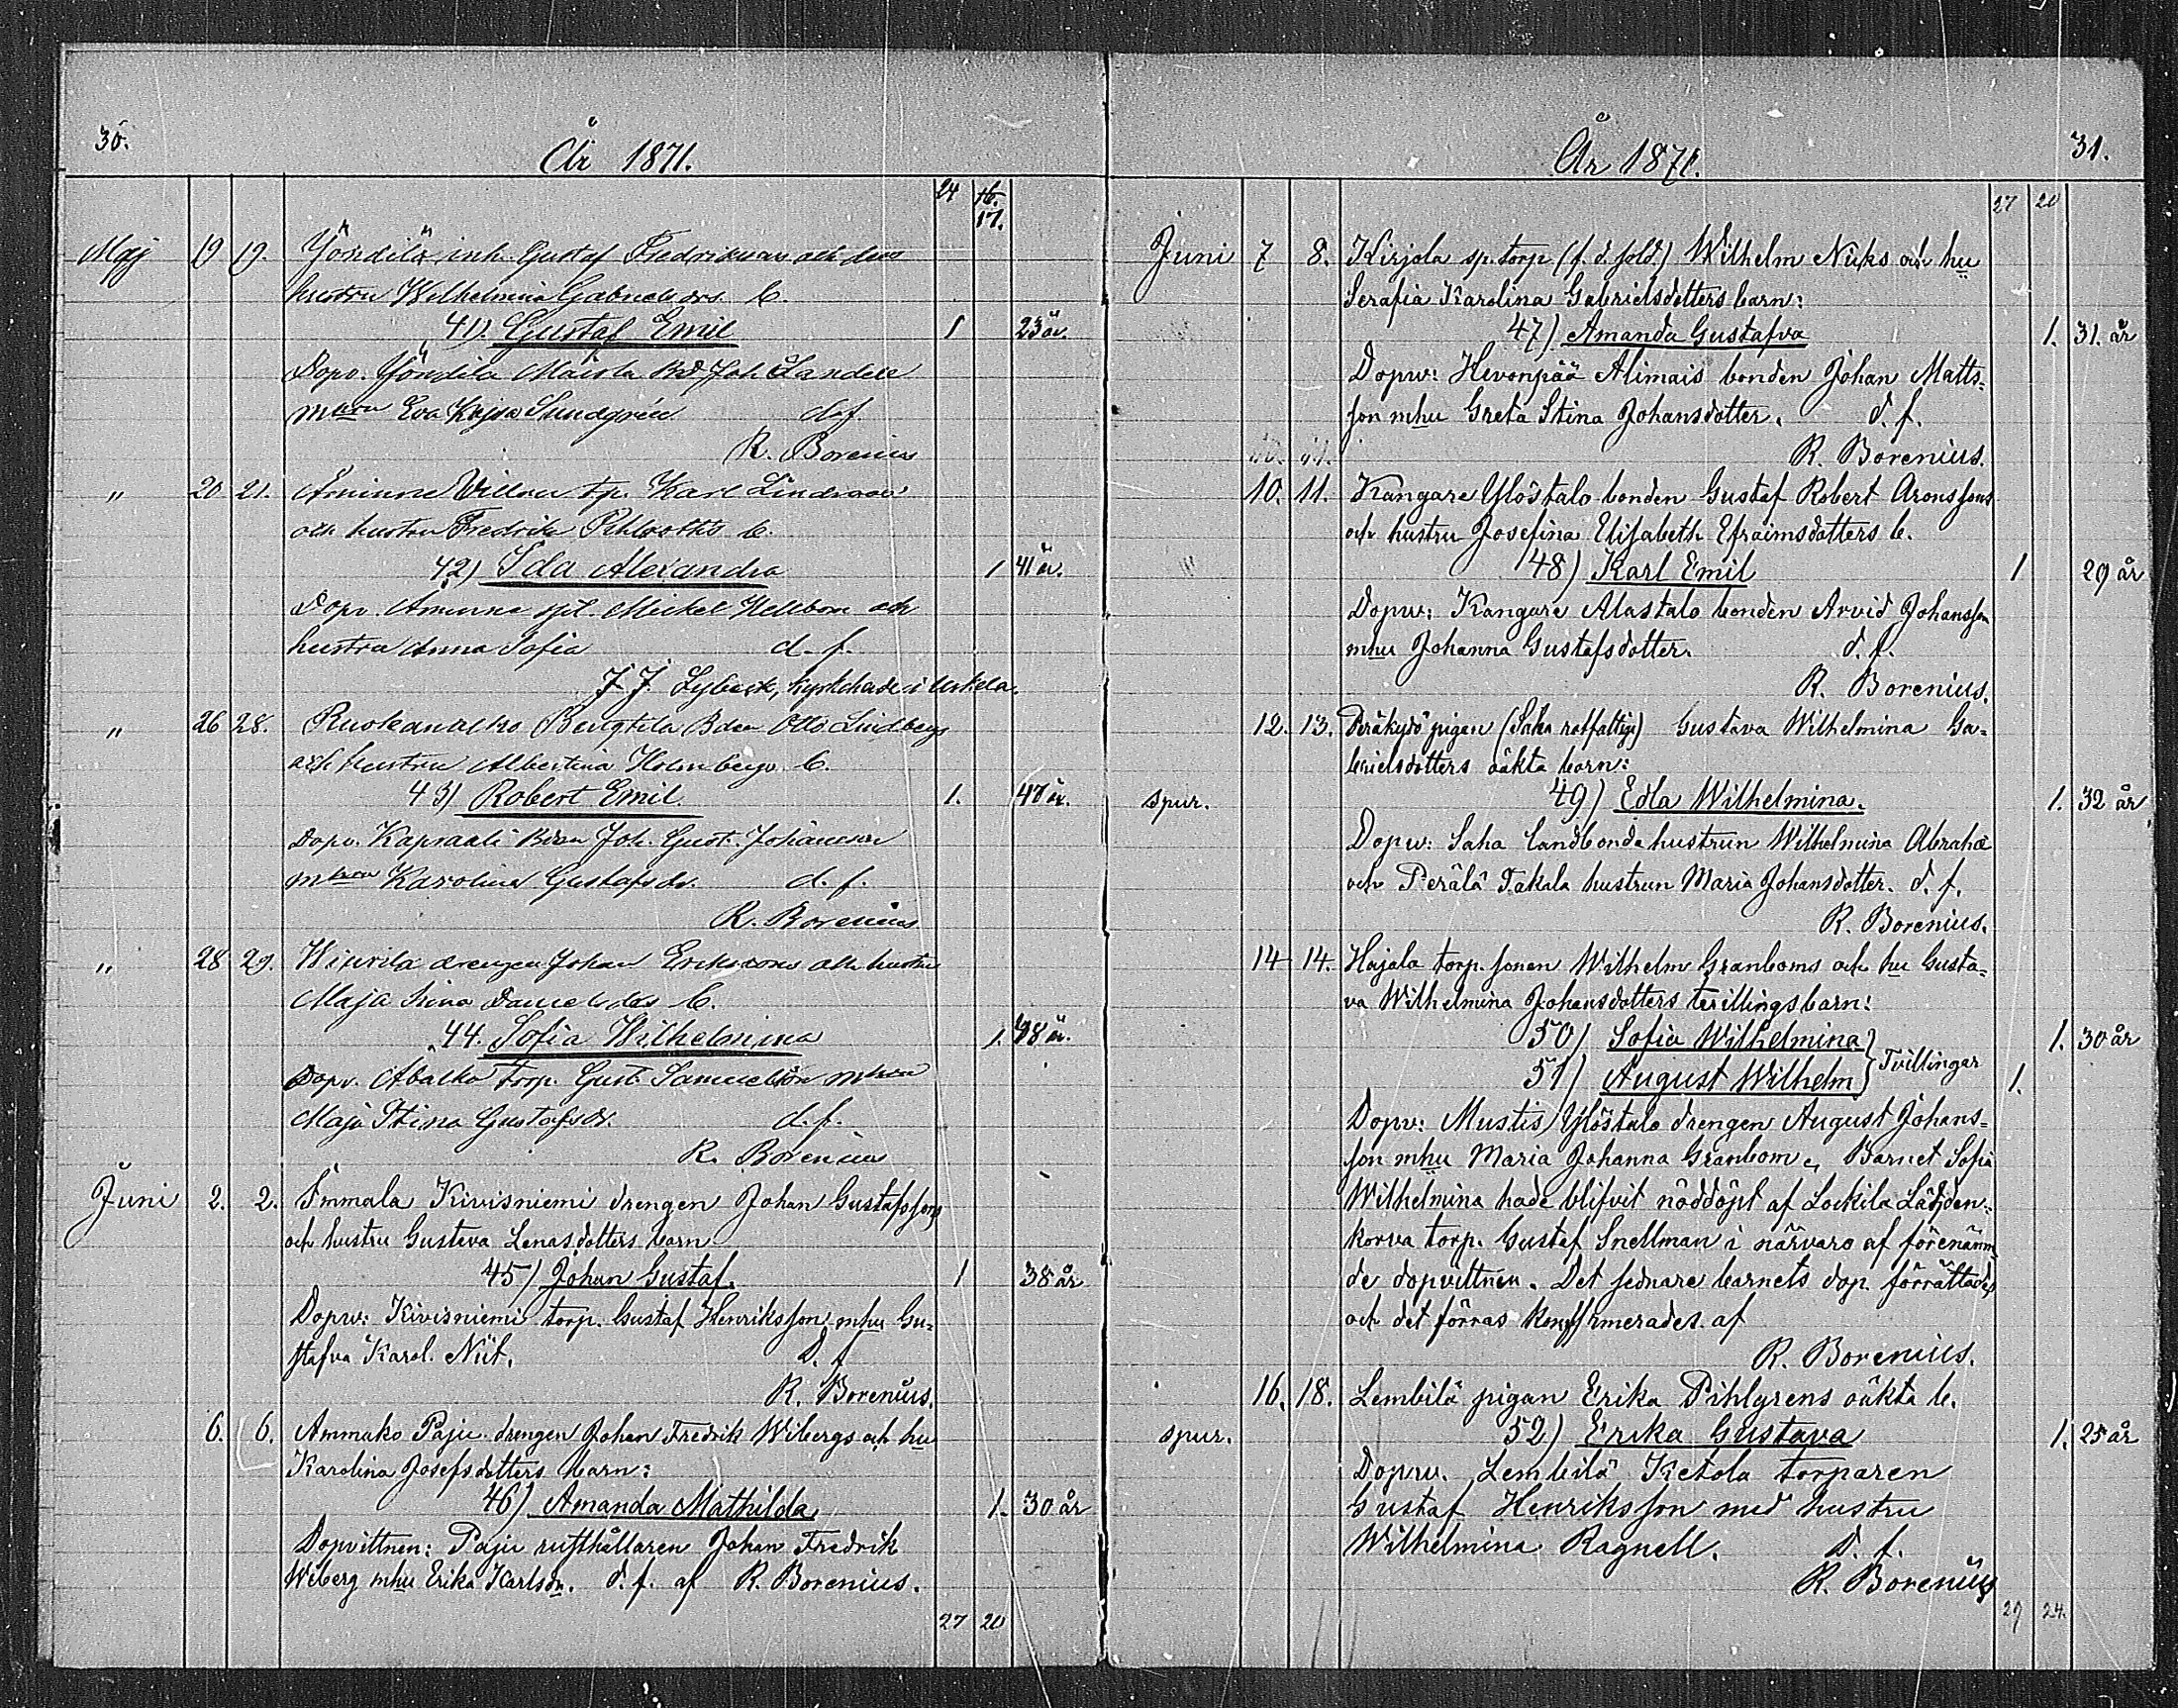 30.
År 1871.
24 16.
17.
Maj 19 19. Jöndilä inh. Gustaf Fredriksson och dess
hustru Wilhelmina Gabrielsdrs b.
41). Gustaf Emil 1 23 år.
Dopv. Jöndilä Maisla Bd Joh.
mhru Eva Kajsa Sundgrén d. f.
R. Borenius
" 20 21. Åminne tp. Karl Lindroos
och hustru Fredrika b.
42) Ida Alexandra 1 41 år.
Dopv. Åminne Mickel Hellbom och
hustru Anna Sofia d. f.
J. J. Lybeck, kyrkoherde i Uskela.
" 26 28. Bengtila Bden Otto Lindbergs
och hustru Albertina Holmbergs b.
43) Robert Emil 1. 47 år.
Dopv. Kapraali Bden Joh. Gust. Johansson
mhru Karolina Gustafsdr. d. f.
R. Borenius
" 28 29. drengen Johan Erikssons och hustru
Maja Stina Danielsdrs b.
44. Sofia Wilhelmina 1. 48 år.
Dopv. torp. Gust. Samuelson mhru
Maja Stina Gustafsdr. d. f.
R. Borenius
Juni 2. 2. Immala Kivisniemi drengen Johan Gustafssons
och hustru Gustava Lenasdotters barn
45) Johan Gustaf. 1 38 år
Dopv: Kivisniemi torp. Gustaf Henriksson mhu Gu-
stafva Karol. Niit. D. f.
R. Borenius.
6. 6. Ammako Paju drengen Johan Fredrik Wibergs och hu
Karolina Josefsdotters barn:
46) Amanda Mathilda 1. 30 år
Dopvittnen: Paju rusthållaren Johan Fredrik
Wiberg mhu Erika Karlsdr. d. f. af R. Borenius.
27 20
31.
År 1871.
27 20
Juni 7 8. Kirjola sp. torp (f. d. sold.) Wilhelm Nuks och hu
Serafia Karolina Gabrielsdotters barn:
47) Amanda Gustafva 1. 31. år
Dopv: Hevonpää Alimais bonden Johan Matts-
son mhu Greta Stina Johansdotter. d. f.
R. Borenius.
10. 11. Kangare Ylöstalo bonden Gustaf Robert Aronssons
och hustru Josefina Elisabeth Efraimsdotters b.
48) Karl Emil 1 29 år
Dopv: Kangare Alastalo bonden Arvid Johansson
mhu Johanna Gustafsdotter. d. f.
R. Borenius.
12. 13. Peräkylö pigan (Saha rotfattige) Gustava Wilhelmina Ga-
brielsdotters oäkta barn:
spur. 49) Edla Wilhelmina. 1. 32 år
Dopv: Saha landbonde hustrun Wilhelmina
och Perälä Takala hustrun Maria Johansdotter. d. f.
R. Borenius.
14 14. Hajala torp. sonen Wilhelm Granboms och hu Gusta-
va Wilhelmina Johansdotters tvillingsbarn:
50) Sofia Wilhelmina 1. 30 år
51) August Wilhelm } Tvillingar 1.
Dopv: Mustis Ylöstalo drengen August Johans-
son mhu Maria Johanna Granbom. Barnet Sofia
Wilhelmina hade blifvit nöddöpt af Lockila
korva torp. Gustaf Snellman i närvaro af förenämn-
de dopvittnen. Det sednare barnets dop förrättades
och det förras konffirmerades af
R. Borenius.
16. 18. Lembilä pigan Erika Pihlgrens oäkta b.
spur. 52) Erika Gustava 1. 25 år
Dopv. Lembilä Ketola torparen
Gustaf Henriksson med hustru
Wilhelmina Ragnell. D. f.
R. Borenius
29 24.